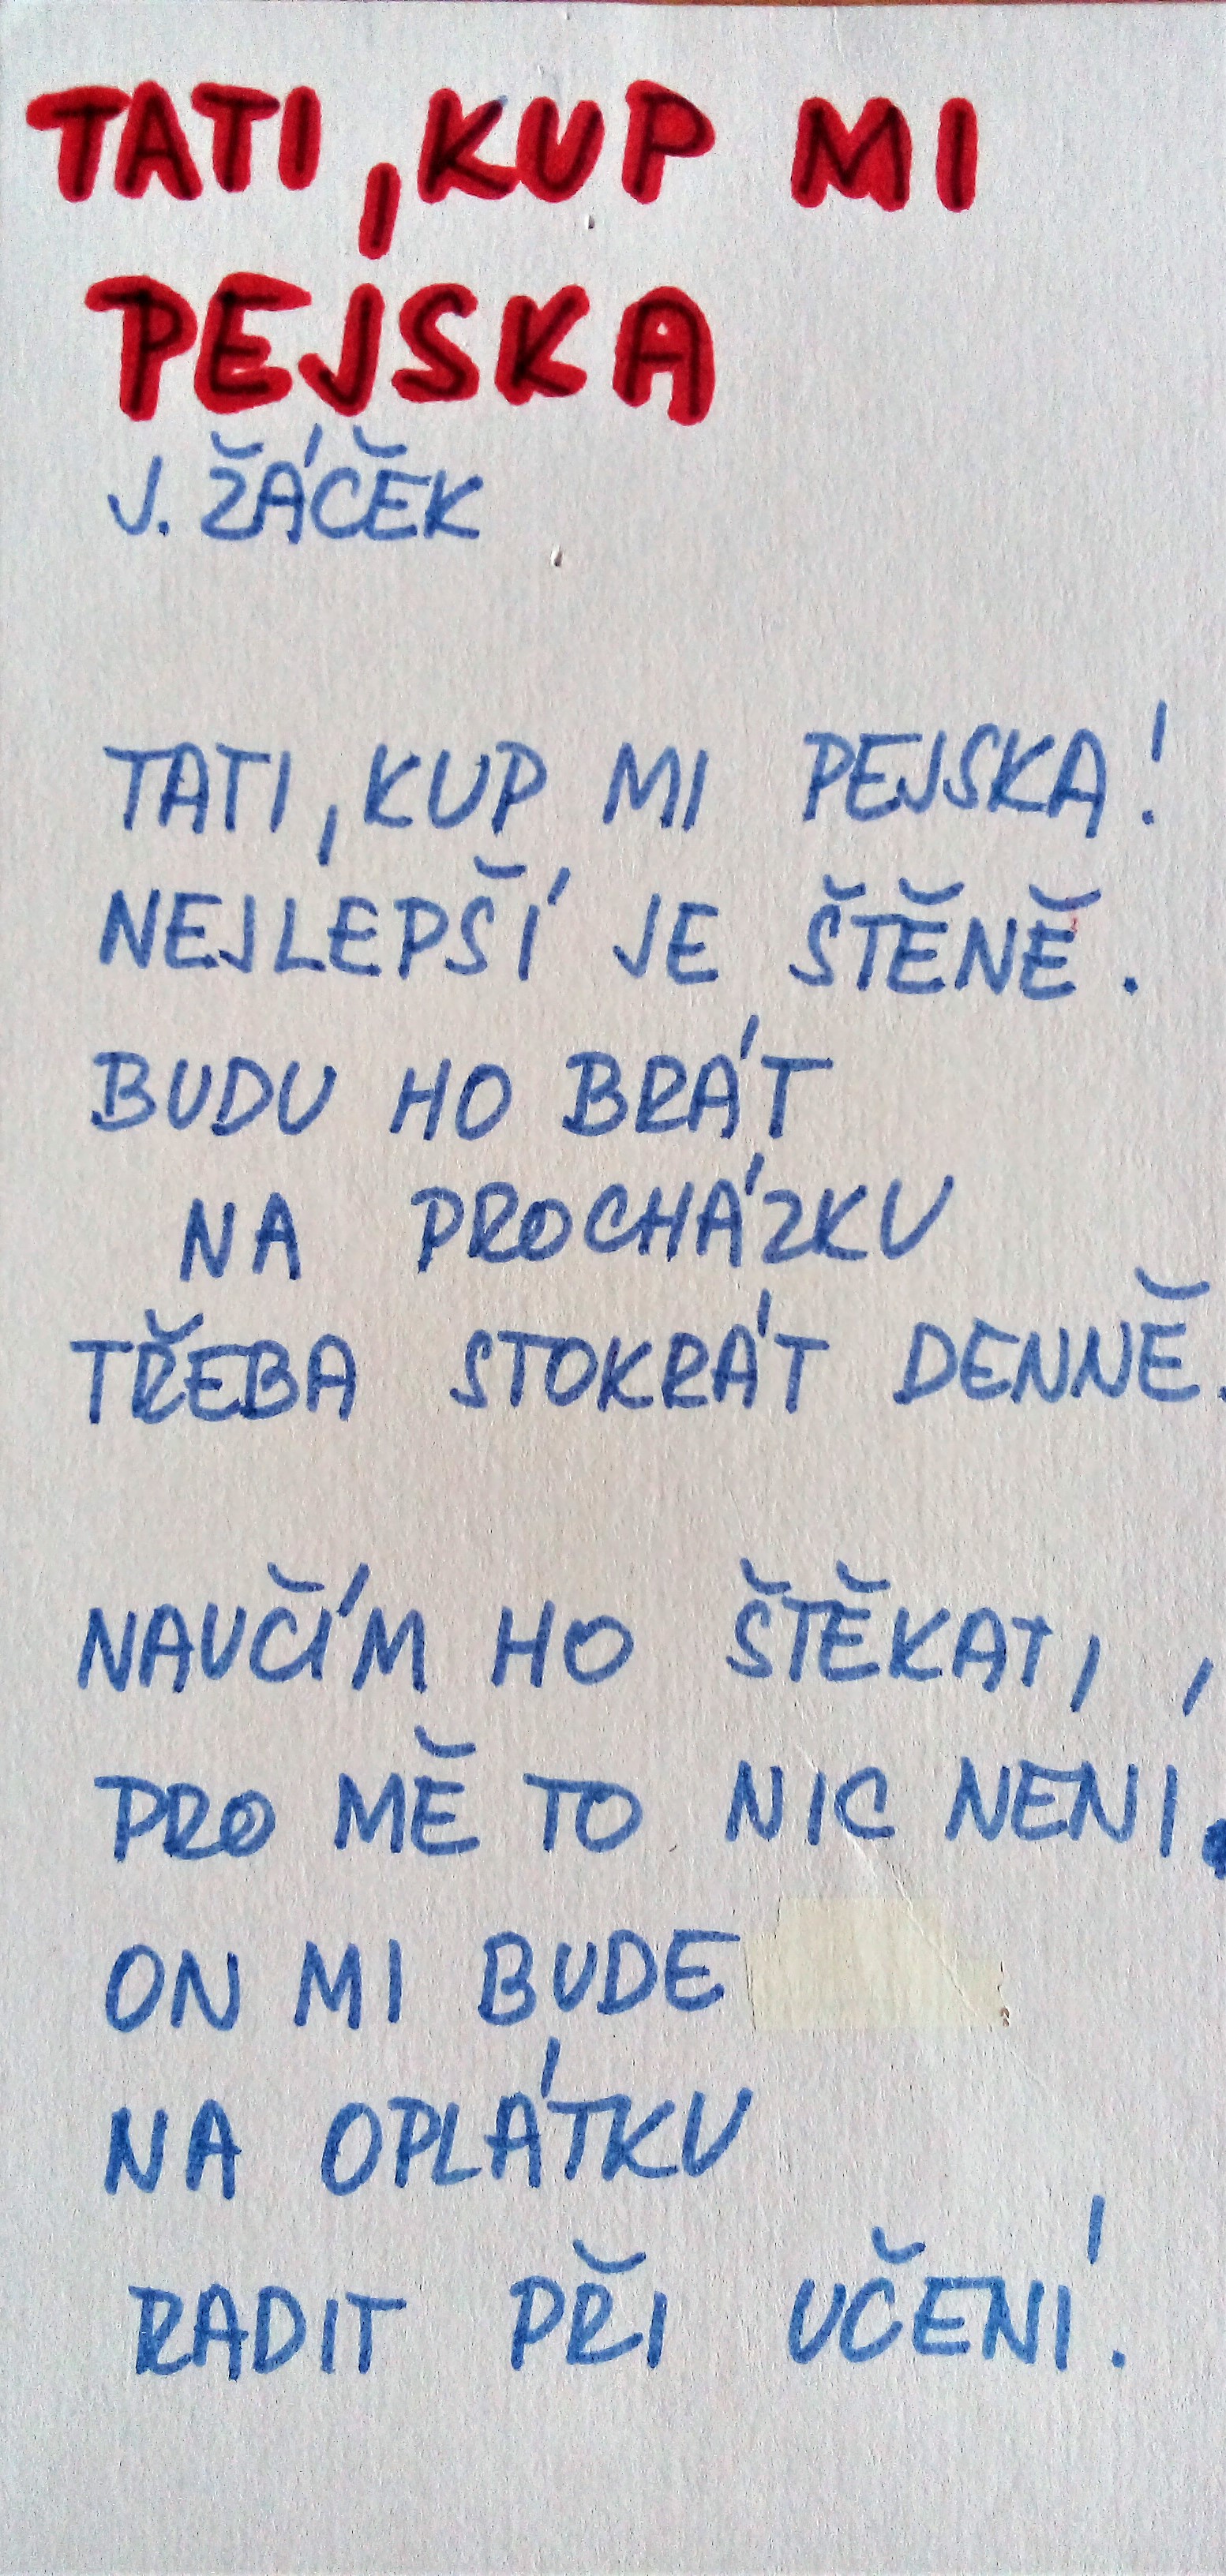 TATI, KUP MI
PEJSKA
J. ŽÁČEK
TATI, KUP MI PEJSKA!
NEJLEPŠÍ JE ŠTĚNĚ.
BUDU HO BRÁT
NA PROCHÁZKU
TŘEBA STOKRÁT DENNĚ.
NAUČÍM HO ŠTĚKAT,
PRO MĚ TO NIC NENÍ.
ON MI BUDE
NA OPLÁTKU
RADIT PŘI UČENÍ.